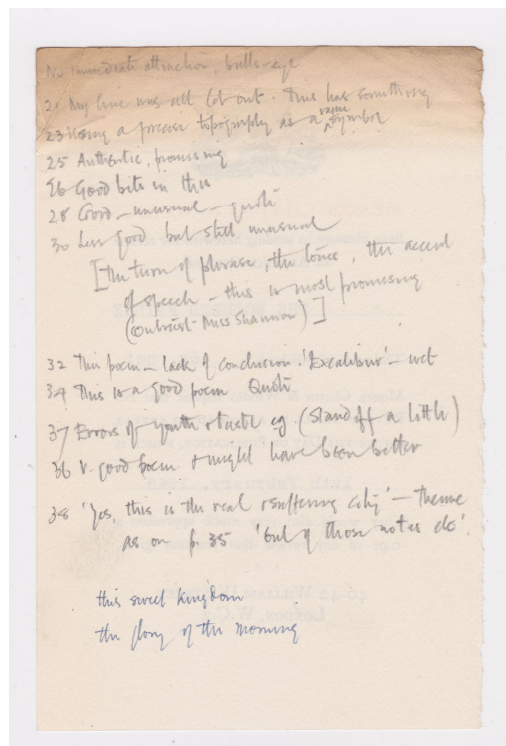 No immediate attraction, bulls-eye
21 My line was all let out. This has something
23 Using a precise topography as a vague symbol
25 Authentic, promising
26 Good bits in this
28 Good - unusual - quote
30 Less good but still unusual
[The turn of phrase, the tone, the accent
of speech - this is most promising
(Contrast - Miss Shannon)]
32 This poem - lack of conclusion. 'Excalibur' - wet
34 This is a good poem Quote
37 Errors of youth & taste eg (Stand off a little)
36 V. good poem & might have been better
38 'Yes, this is the real & suffering city' - theme
as on p 35 'but of those not us do'.
this sweet kingdom
the glory of the morning